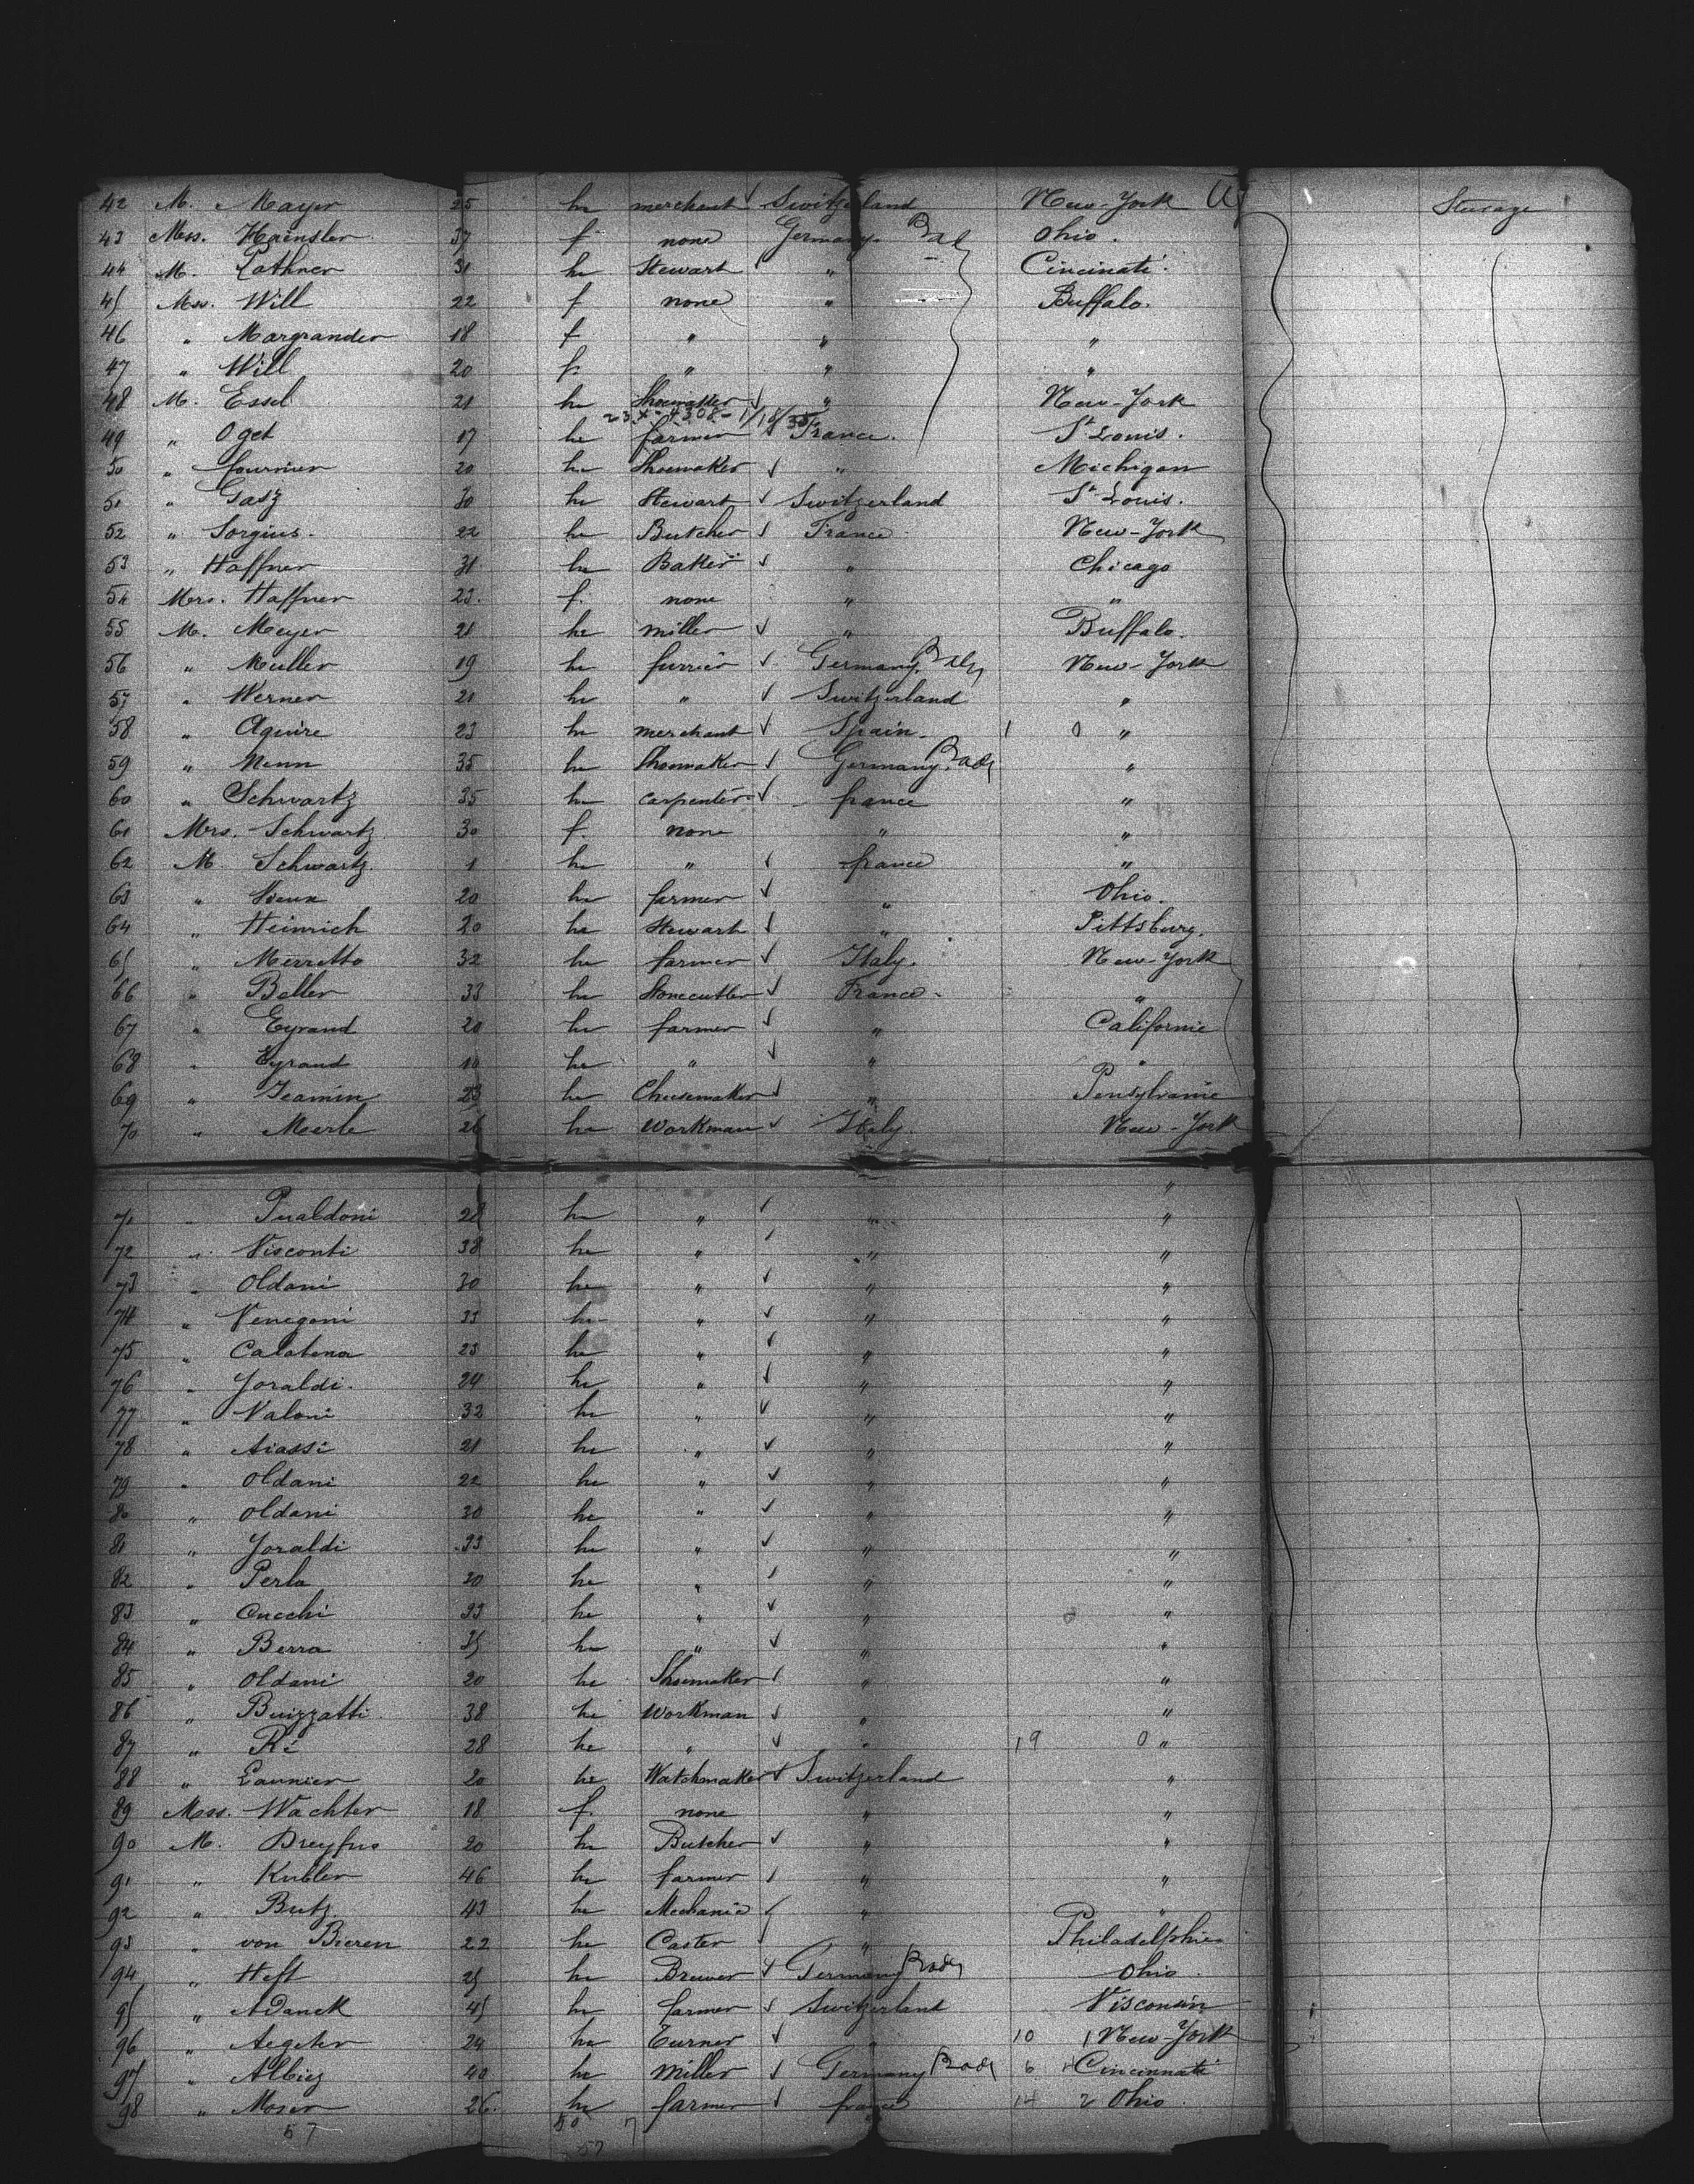 42 M. Mayer 25 he merchant Switzerland New-York Sterage
43 Mess. Haensler 37 f none Germany. Bad Ohio.
44 M. Lathner 31 he Stewart " Cincinati.
45 Mss. Will 22 f none " Buffalo.
46 " Margrander 18 f " " "
47 " Will 20 f. " " "
48 M. Essel 21 he Shoemaker " New-York
23x-4308-1/18/35
49 " Oget 17 he farmer France. St Louis.
50 " fournier 20 he Shoemaker " Michigan
51 " Gasz 30 he Stewart Switzerland St Louis.
52 " Sorgius. 22 he Butcher France New-York
53 " Haffner 31 he Baker " Chicago
54 Mrs. Haffner 23. f. none " "
55 M. Meyer 21 he miller " Buffalo.
56 " Muller 19 he furrier Germany. Bad New-York
57 " Werner 21 he " Switzerland "
58 " Aguire 23 he merchant Spain. 1 0 "
59 " Menn 35 he Shoemaker Germany. Bad "
60 " Schwartz 35 he carpenter france "
61 Mrs. Schwartz 30 f. none " "
62 M Schwartz. 1 he " france "
63 " 20 he farmer " Ohio.
64 " Heinrich 20 he Stewart " Pittsburg.
65 " Merretto 32 he farmer Italy. New-York
66 " Beller 33 he Stonecutter France "
67 " Eyrand 20 he farmer " Californie
68 " Eyrand he " " "
69 " Jeamin 23 he Cheesemaker " Pensylvanie
70 " Meerle 26 he Workman Italy. New-York
"
71 " Pualdoni 28 he " " "
72 " Visconti 38 he " " "
73 " Oldani 30 he " " "
74 " Venegoni 33 he " " "
75 " Calatena 23 he " " "
76 " Joraldi. 24 he " " "
77 " Valoni 32 he " " "
78 " Aiassi 21 he " " "
79 " Oldani 22 he " " "
80 " Oldani 30 he " " "
81 " Joraldi 33 he " " "
82 " Perla 20 he " " "
83 " Cucchi 33 he " " "
84 " Berra 35 he " " "
85 " Oldani 20 he Shoemaker " "
86 " Buizzatti. 38 he Workman " "
87 " Ré 28 he " " 19 0 "
88 " Launier 20 he Watchmaker Switzerland "
89 Mess. Wachter 18 f. none " "
90 M. Dreyfus 20 he Butcher " "
91 " Kubler 46 he farmer " "
92 " Butz. 43 he Mechanic " "
93 " von Bieren 22 he Caster " Philadelphie
94 " Heft 25 he Brewer Germany Bad Ohio.
95 " ADanck 45 he farmer Switzerland Visconsin
96 " Aegeter 24 he Turner " 10 1 New-York
97 " Albiez 40 he miller Germany Bad 6 Cincinnati
98 " Moser 26. he farmer france 14 2 Ohio.
57 50 7
57